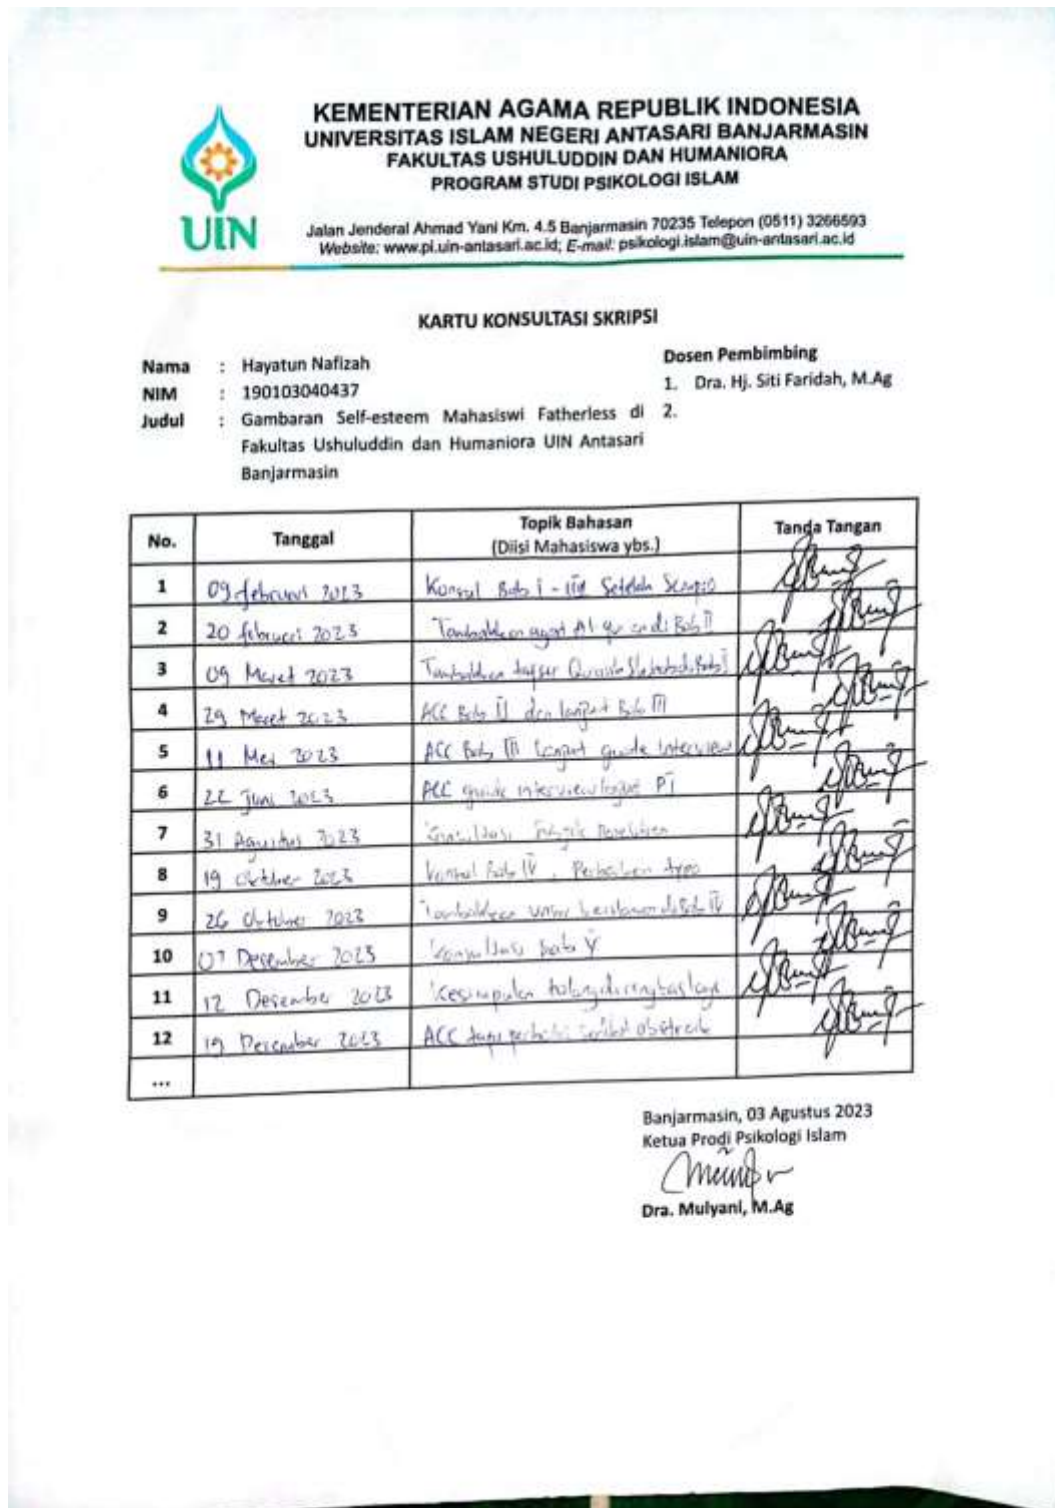 KEMENTERIAN AGAMA REPUBLIK INDONESIA
UNIVERSITAS ISLAM NEGERI ANTASARI BANJARMASIN
FAKULTAS USHULUDDIN DAN HUMANIORA
PROGRAM STUDI PSIKOLOGI ISLAM
UIN
Jalan Jenderal Ahmad Yani Km. 4.5 Banjarmasin 70235 Telepon (0511) 3266593
Website: www.pi.uin-antasari.ac.id; E-mail: psikologi.islam@uin-antasari.ac.id
KARTU KONSULTASI SKRIPSI
Nama : Hayatun Nafizah
NIM : 190103040437
Judul : Gambaran Self-esteem Mahasiswi Fatherless di
Fakultas Ushuluddin dan Humaniora UIN Antasari
Banjarmasin
Dosen Pembimbing
1. Dra. Hj. Siti Faridah, M.Ag
2.
No. Tanggal Topik Bahasan (Diisi Mahasiswa ybs.) Tanda Tangan
1 09 februari 2023 Konsul Bab I - III Setelah Sempro
2 20 februari 2023 Tambahkan ayat Al qur'an di Bab II
3 09 Maret 2023 Tambahkan tafsir Quraish Shihab di Bab
4 29 Maret 2023 ACC Bab II dan lanjut Bab III
5 11 Mei 2023 ACC Bab III lanjut guide interview
6 22 Juni 2023 ACC guide interview lanjut
7 31 Agustus 2023 Konsultasi Penelitian
8 19 Oktober 2023 Konsul Bab IV, Perbaikan typo
9 26 Oktober 2023 Tambahkan unsur keislaman di Bab IV
10 Desember 2023 Konsultasi bab V
11 12 Desember 2023 Kesimpulan tolong diringkas lagi
12 19 Desember 2023 ACC perbaiki abstrak
...
Banjarmasin, 03 Agustus 2023
Ketua Prodi Psikologi Islam
Dra. Mulyani, M.Ag